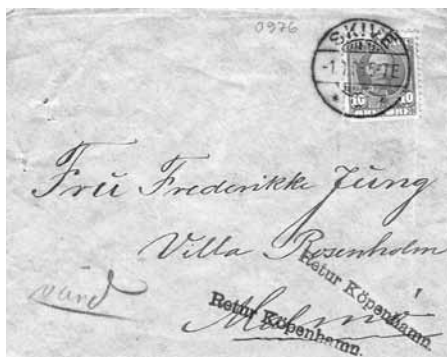 0976
SKIVE
10 10
Fru Frederikke Jung
Villa Rosenholm
Retur Köpenhamn.
vänd
Retur Köpenhamn.
Malmö